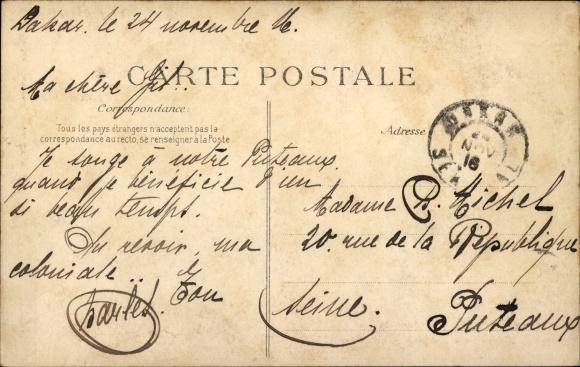 Dakar. le 24 novembre 16.
CARTE POSTALE
Ma chère
Correspondance:
Tous les pays étrangers n'acceptent pas la
correspondance au recto, se renseigner à la Poste
Je songe à notre Puteaux.
quand je bénéficie d'un
si beau temps.
Au revoir, ma
coloniale.. Ton
Charles.
Adresse
DAKAR
NOV
16
Madame Ch. Michel
20. rue de la République
Puteaux
Seine.